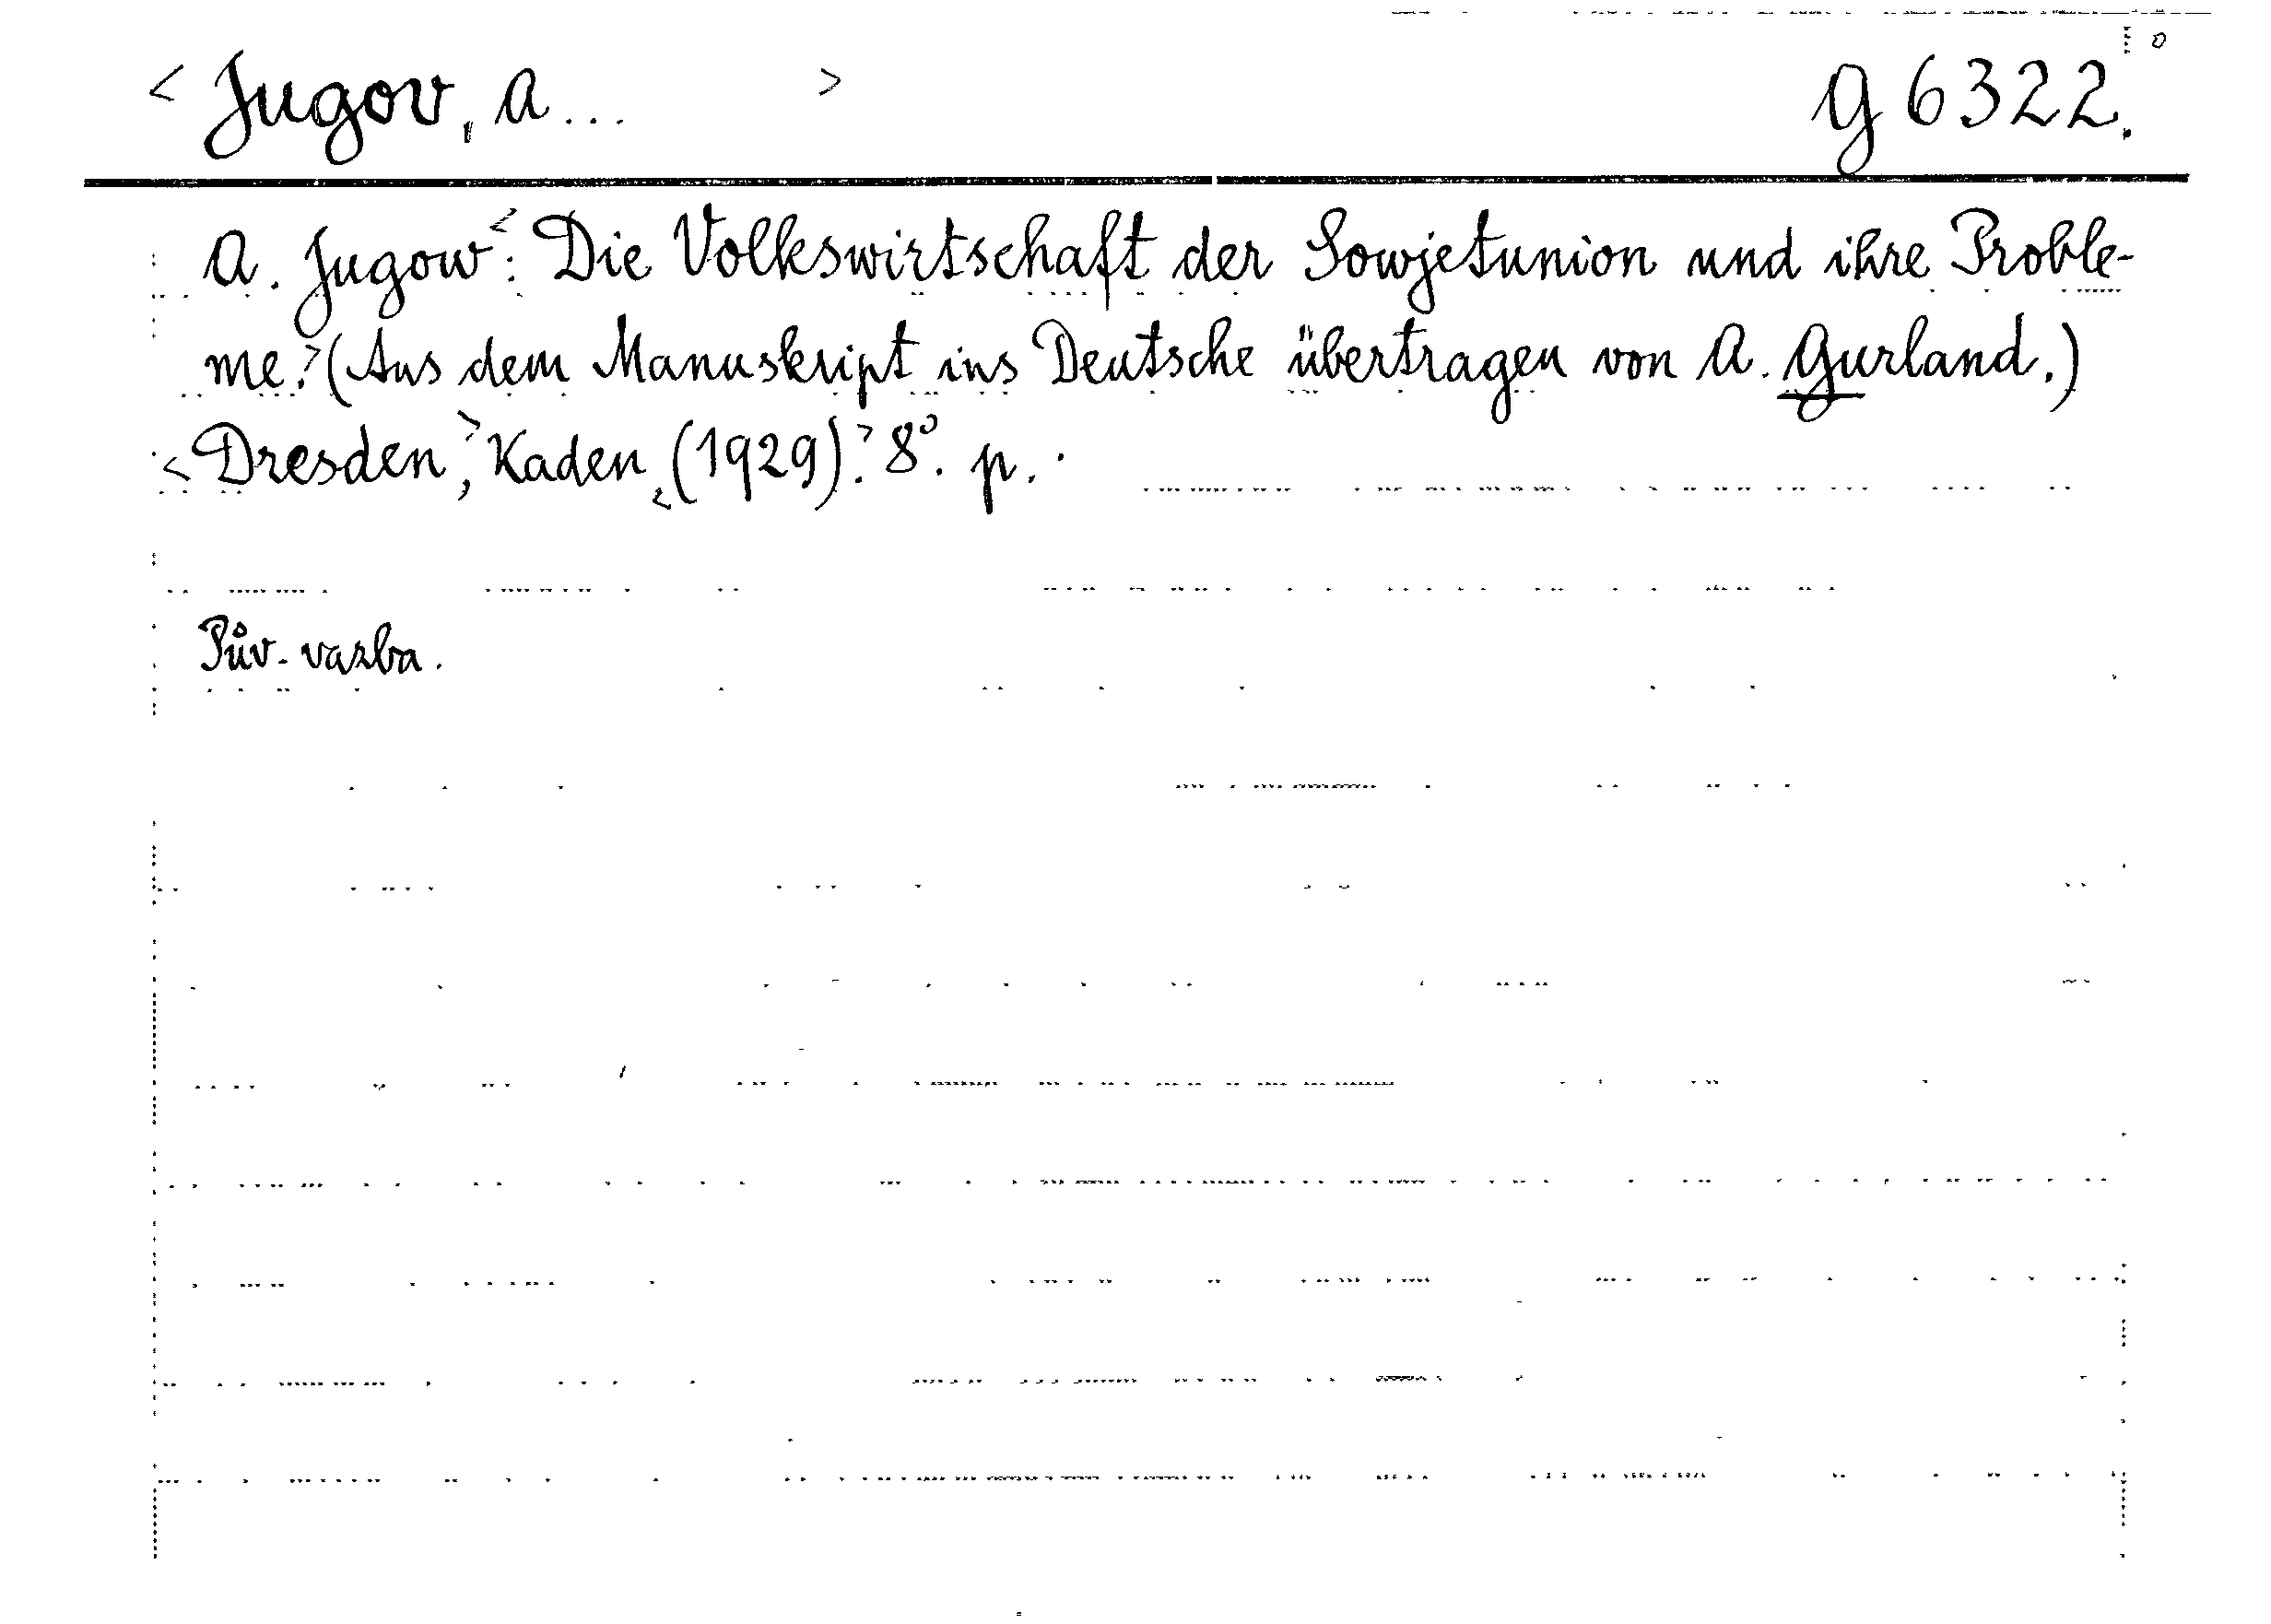 < Jugov, A... > g 6322.
A. Jugow<: Die Volkswirtschaft der Sowjetunion und ihre Proble-
me.> (Aus dem Manuskript ins Deutsche übertragen von A. Gurland.)
<Dresden,> Kaden <(1929).> 8°. p. .
Pův. vazba.